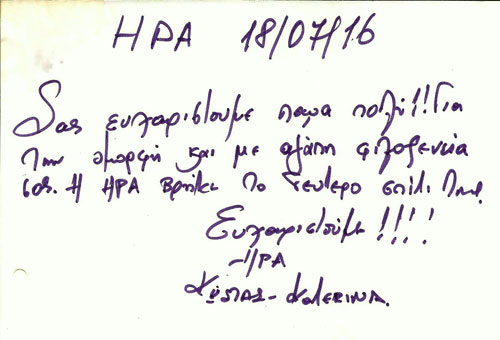 ΗΡΑ 18/07/16
Σας ευχαριστουμε παρα πολύ!! Για
την ομορφη και με αγάπη φιλοξενεία
σας. Η ΗΡΑ βρηκε το δευτερο σπίτι της.
Ευχαριστούμε !!!!
-ΗΡΑ
Κώστας - Katerina.